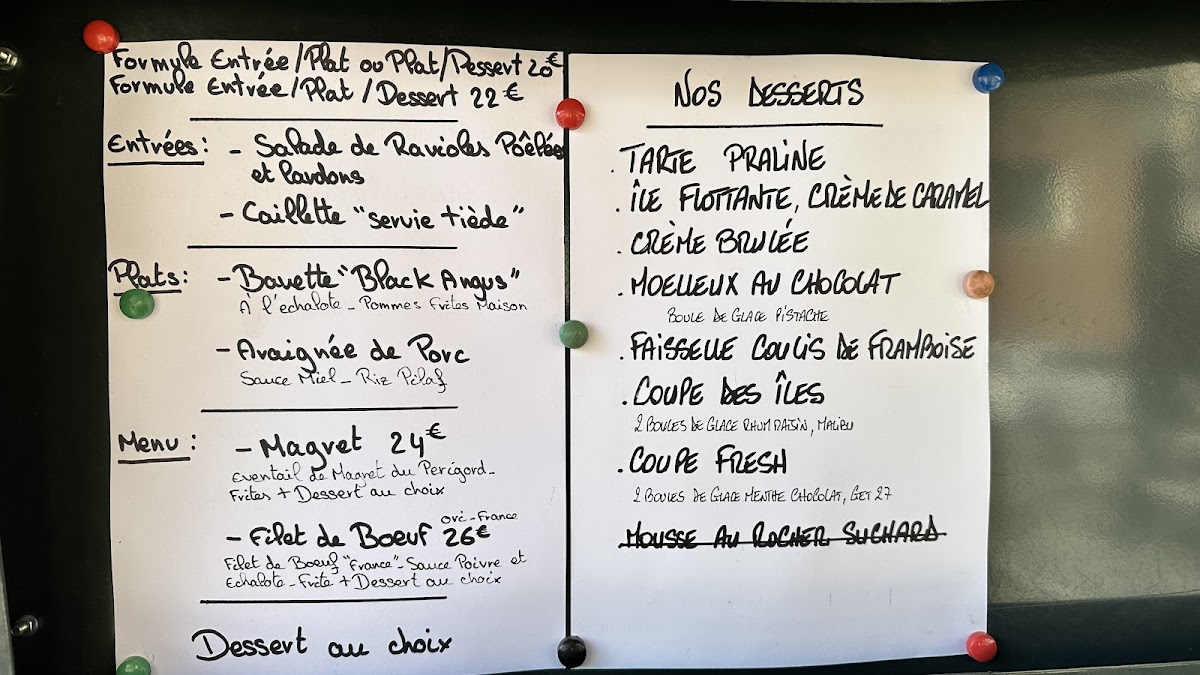 Formule Entrée/Plat ou Plat/Dessert 20€
Formule Entrée/Plat/Dessert 22€
Entrées: - Salade de Ravioles Poêlées
et lardons
- Caillette "servie tiède"
Plats: - Bavette "Black Angus"
À l'echalote - Pommes Frites Maison
- Araignée de Porc
Sauce Miel - Riz Pilaf
Menu: - Magret 24€
Eventail de Magret du Perigord -
Frites + Dessert au choix
ori-France
- Filet de Boeuf 26€
Filet de Boeuf "France" - Sauce Poivre et
Echalote - Frite + Dessert au choix
Dessert au choix
NOS DESSERTS
. TARTE PRALINE
. ÎLE FLOTTANTE, CRÈME DE CARAMEL
. CRÈME BRULÉE
. MOELLEUX AU CHOCOLAT
BOULE DE GLACE PISTACHE
. FAISSELLE COULIS DE FRAMBOISE
. COUPE DES ÎLES
2 BOULES DE GLACE RHUM RAISIN, MALIBU
. COUPE FRESH
2 BOULES DE GLACE MENTHE CHOCOLAT, GET 27
MOUSSE AU ROCHER SUCHARD